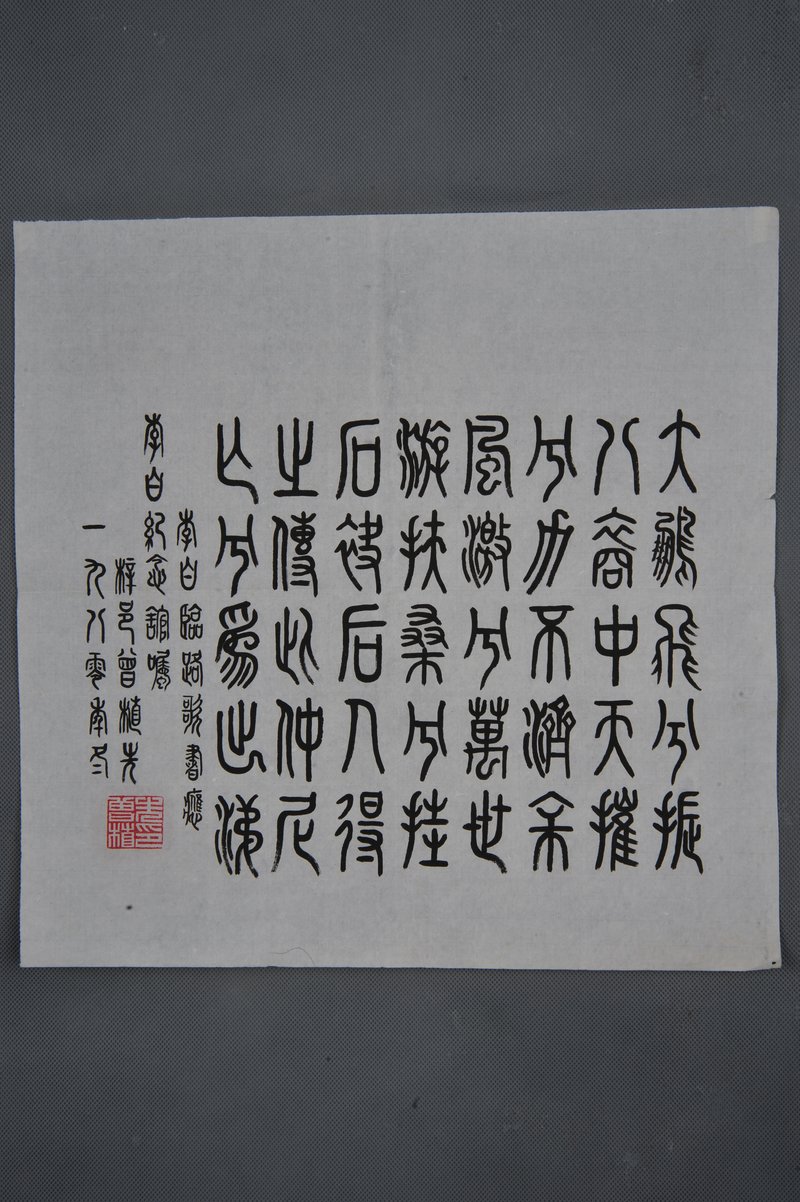 大鵬飛兮振
八裔中天摧
兮力不濟余
風激兮萬世
游扶桑兮挂
石袂后人得
之傳此仲尼
亡兮爲出涕
李白臨路歌書應
李白紀念館囑
梓邑曾植先
一九八零年冬
曾植先印